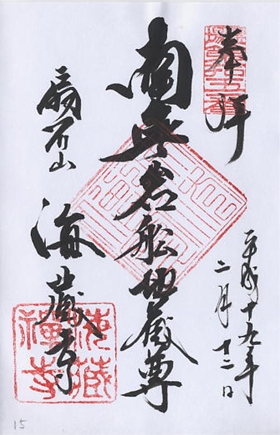 奉拝
平成十九年
二月十二日
南無岩舩地蔵尊
扇谷山
海蔵寺
海藏禪寺
15